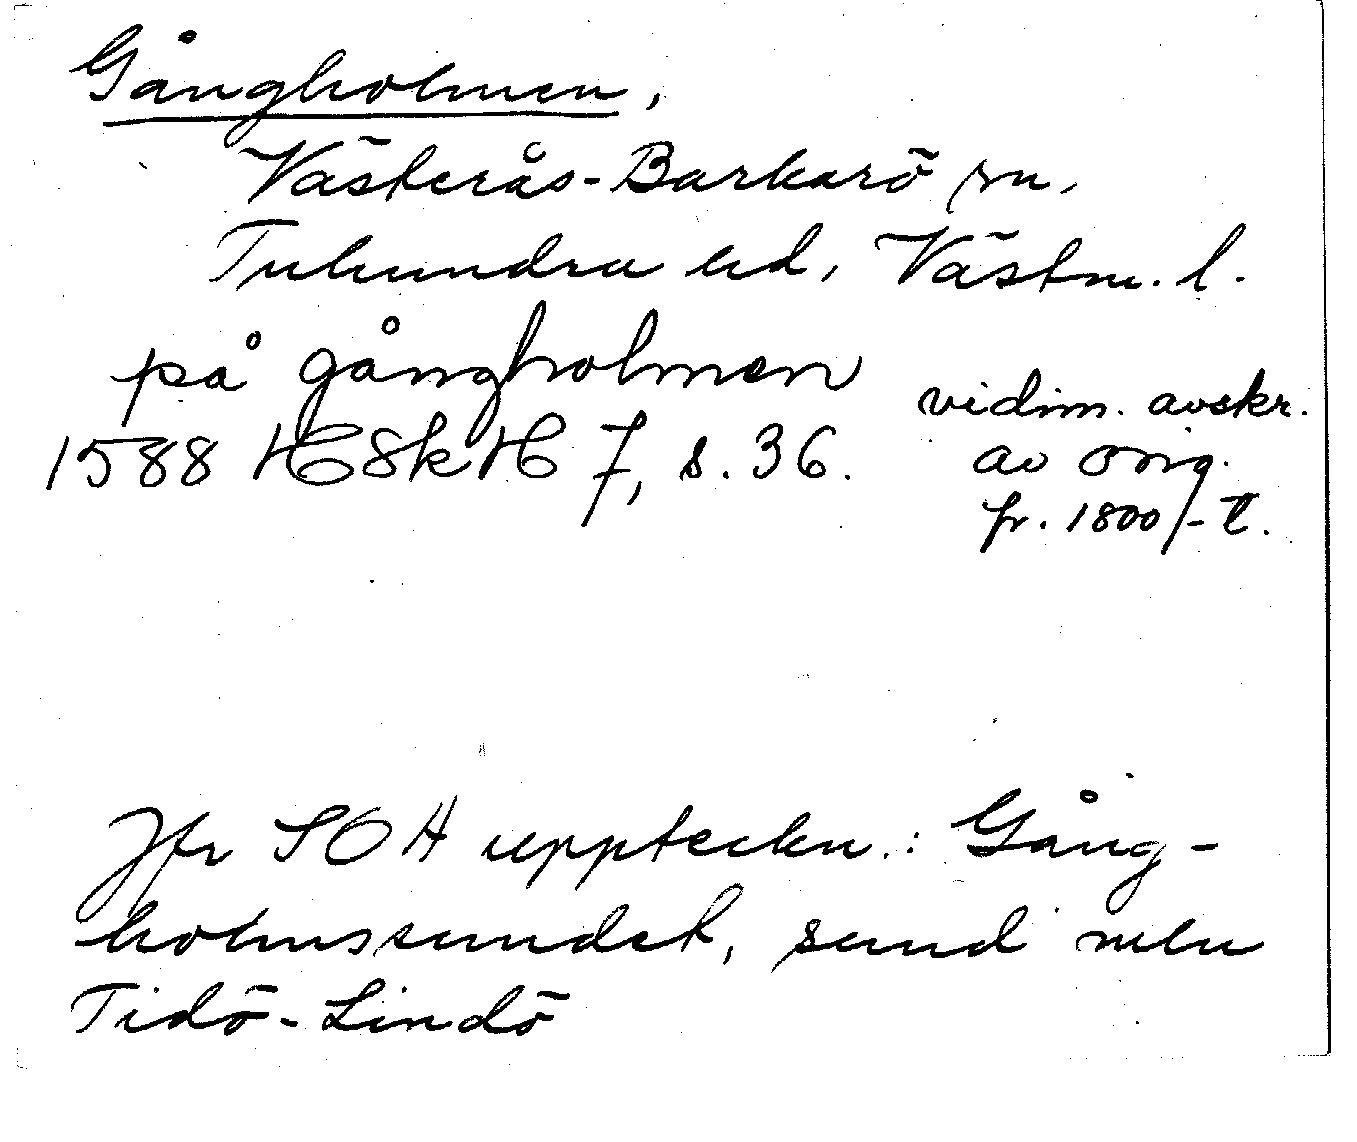 Gångholmen,
Västerås-Barkarö sn,
Tuhundra hd, Västm. l.
på gångholmen
vidim. avskr.
1588 HSkH 7, s. 36.
av orig.
fr. 1800/-t.
Jfr SOA uppteckn.: Gång-
holmssundet, sund mln
Tidö-Lindö